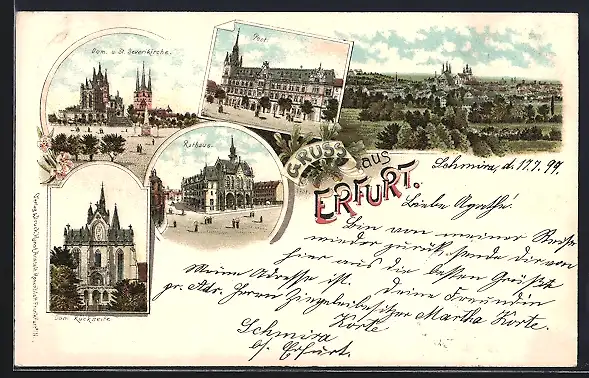 Dom u. St. Severikirche.
Post
Rathaus.
Dom Rückseite
GRUSS
aus
ERFURT.
Schmira, d. 17.7.99.
Liebe Agathe!
Bin von meiner Reise
wieder zurück, sende dir von
hier aus die besten Grüße
Meine Adresse ist. Deine Freundin
pr. Adr. Herrn Ziegeleibesitzer Martha Korte.
Korte
Schmira
b/ Erfurt.